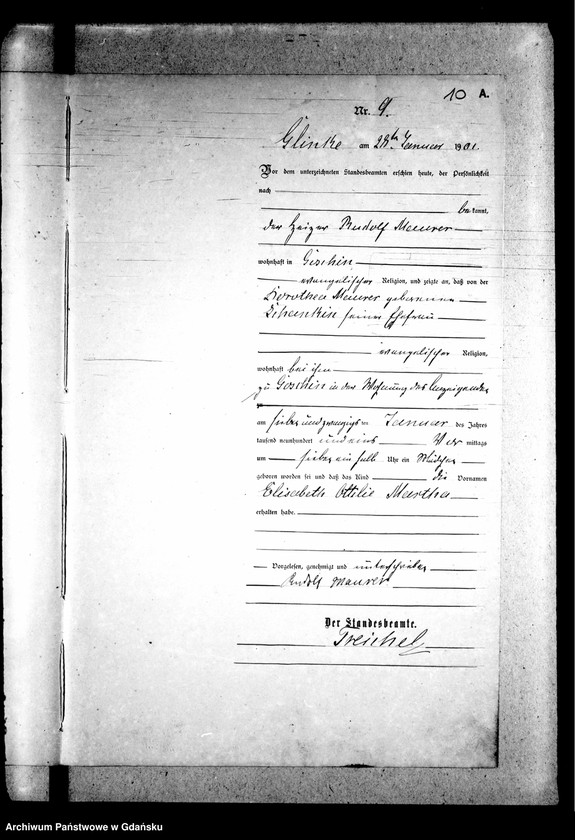 10 A.
Nr. 9.
Glinke am 28ten Januar 1901.
Vor dem unterzeichneten Standesbeamten erschien heute, der Persönlichkeit
nach
bekannt,
der Rudolf Maurer
wohnhaft in Goschin
evangelischer Religion, und zeigte an, daß von der
Dorothea Maurer geborenen
seiner Ehefrau
evangelischer Religion,
wohnhaft bei ihm
zu Goschin in der Wohnung des Anzeigenden
am sieben und zwanzigsten Januar des Jahres
tausend neunhundert und eins Vor mittags
um sieben ein halb Uhr ein Mädchen
geboren worden sei und daß das Kind die Vornamen
Elisabeth Ottilie Martha
erhalten habe.
Vorgelesen, genehmigt und unterschrieben
Rudolf Maurer
Der Standesbeamte.
Treichel
Archiwum Państwowe w Gdańsku